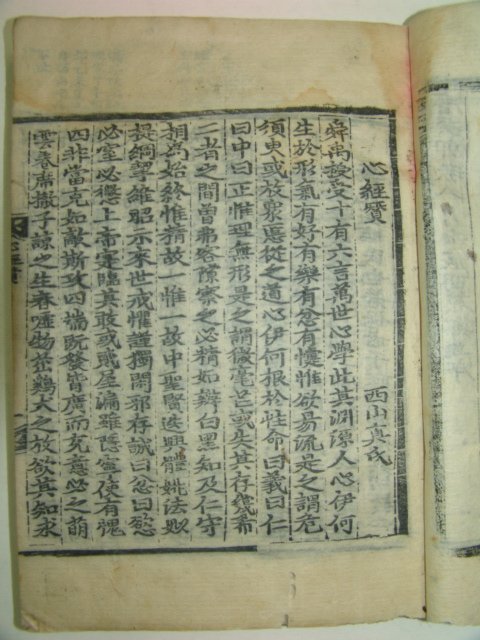 心經贊
西山真氏
舜禹授受十有六言萬世心學此其淵源人心伊何
生於形氣有好有樂有忿有懥惟欲易流是之謂危
須臾或放衆慝從之道心伊何根於性命曰義曰仁
曰中曰正惟理無形是之謂微毫芒或失其存幾希
二者之間曾弗容隙察之必精如辨白黑知及仁守
相爲始終惟精故一惟一故中聖賢迭興體姚法姒
提綱挈維昭示來世戒懼謹獨閑邪存誠曰忿曰慾
必窒必懲上帝寔臨其敢或貳屋漏雖隱寧使有愧
四非當克如敵斯攻四端旣發皆廣而充意必之萌
雲卷席撤子諒之生春噓物茁鷄犬之放欲其知求
心經贊